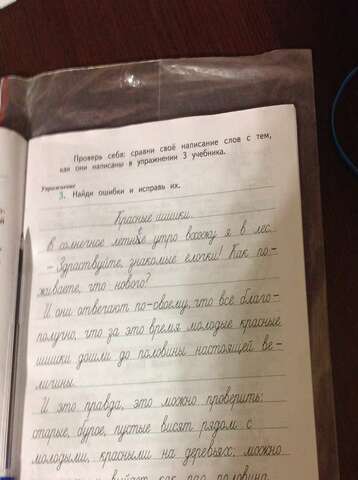 Проверь себя: сравни своё написание слов с тем,
как они написаны в упражнении 3 учебника.
Упражнение
3. Найди ошибки и исправь их.
Красные шишки.
В солнечное летнее утро вхожу я в лес.
– Здраствуйте, знакомые елочки! Как по-
живаете, что нового?
И они отвечают по-своему, что всё благо-
получно, что за это время молодые красные
шишки дошли до половины настоящей ве-
личины.
И это правда, это можно проверить:
старые, бурые, пустые висят рядом с
молодыми, красными на деревьях: можно
как раз половина